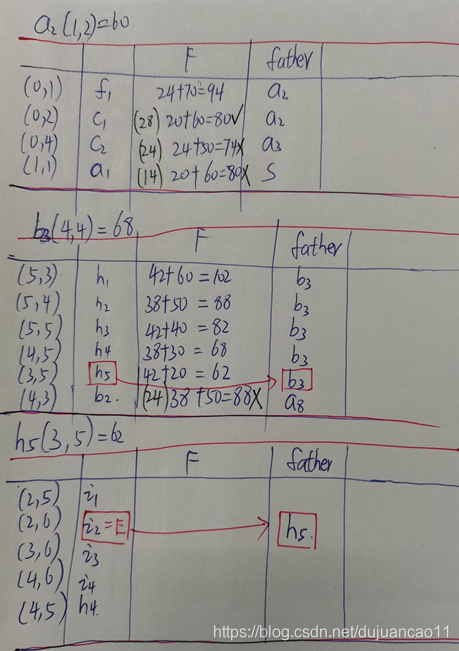 a₂(1,2)=60
F father
(0,1) f₁ 24+70=94 a₂
(0,2) c₁ (28) 20+60=80√ a₂
(0,4) c₂ (24) 24+50=74X a₃
(1,1) a₁ (14) 20+60=80X S
b₃(4,4)=68
F father
(5,3) h₁ 42+60=102 b₃
(5,4) h₂ 38+50=88 b₃
(5,5) h₃ 42+40=82 b₃
(4,5) h₄ 38+30=68 b₃
(3,5) h₅ 42+20=62 b₃
(4,3) b₂. (24)38+50=88X a₈
h₅(3,5)=62
F father
(2,5) i₁
(2,6) i₂=E h₅.
(3,6) i₃
(4,6) i₄
(4,5) h₄.
https://blog.csdn.net/dujuancao11